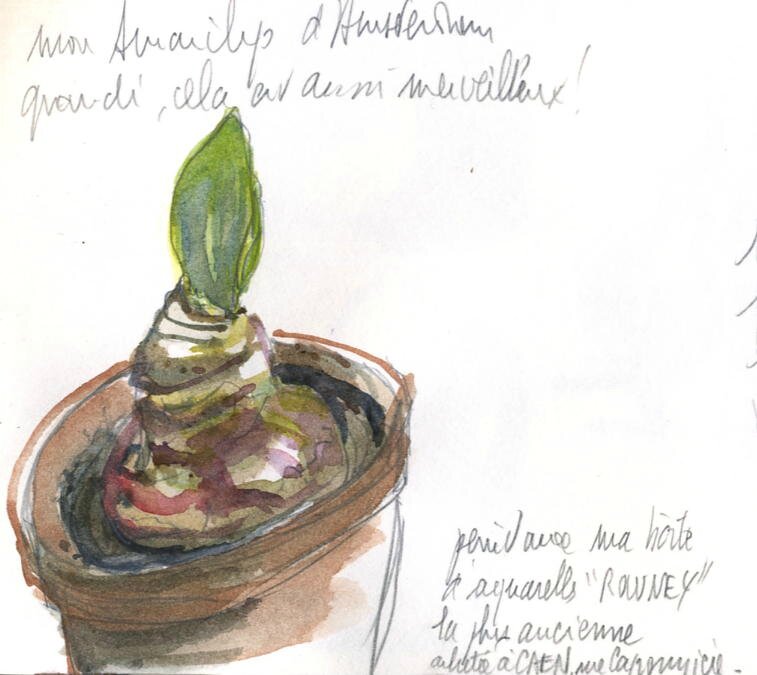 mon Amarilys d'Amsterdam
grandi, cela est aussi merveilleux!
ma boîte
d'aquarelles "ROWNEY"
la plus ancienne
achetée à CAEN, rue